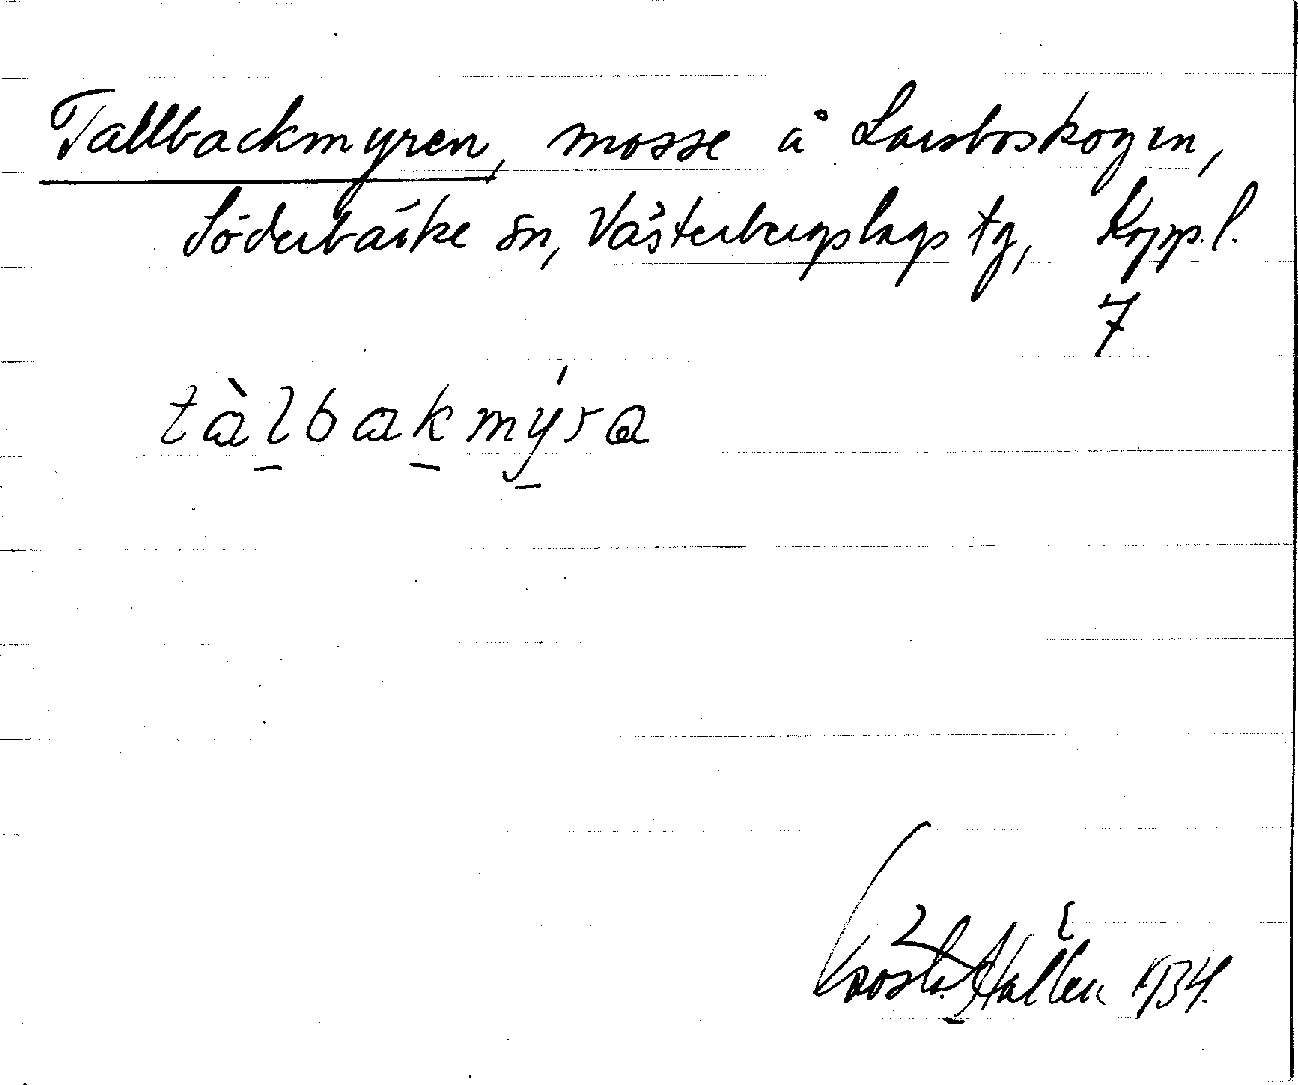 Tallbackmyren, mosse å Larsboskogen,
Söderbärke sn, Västerbergslags tg, Kopp. l.
7
tàlbakmýra
Gösta Hallén 1934.